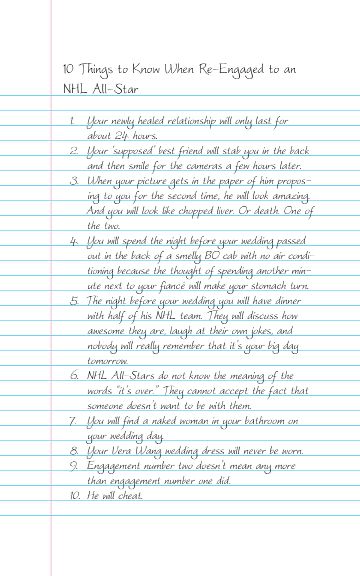 10 Things to Know When Re-Engaged to an
NHL All-Star
1. Your newly healed relationship will only last for
about 24 hours.
2. Your 'supposed' best friend will stab you in the back
and then smile for the cameras a few hours later.
3. When your picture gets in the paper of him propos-
ing to you for the second time, he will look amazing.
And you will look like chopped liver. Or death. One of
the two.
4. You will spend the night before your wedding passed
out in the back of a smelly BO cab with no air condi-
tioning because the thought of spending another min-
ute next to your fiancé will make your stomach turn.
5. The night before your wedding you will have dinner
with half of his NHL team. They will discuss how
awesome they are, laugh at their own jokes, and
nobody will really remember that it's your big day
tomorrow.
6. NHL All-Stars do not know the meaning of the
words "it's over." They cannot accept the fact that
someone doesn't want to be with them.
7. You will find a naked woman in your bathroom on
your wedding day.
8. Your Vera Wang wedding dress will never be worn.
9. Engagement number two doesn't mean any more
than engagement number one did.
10. He will cheat.